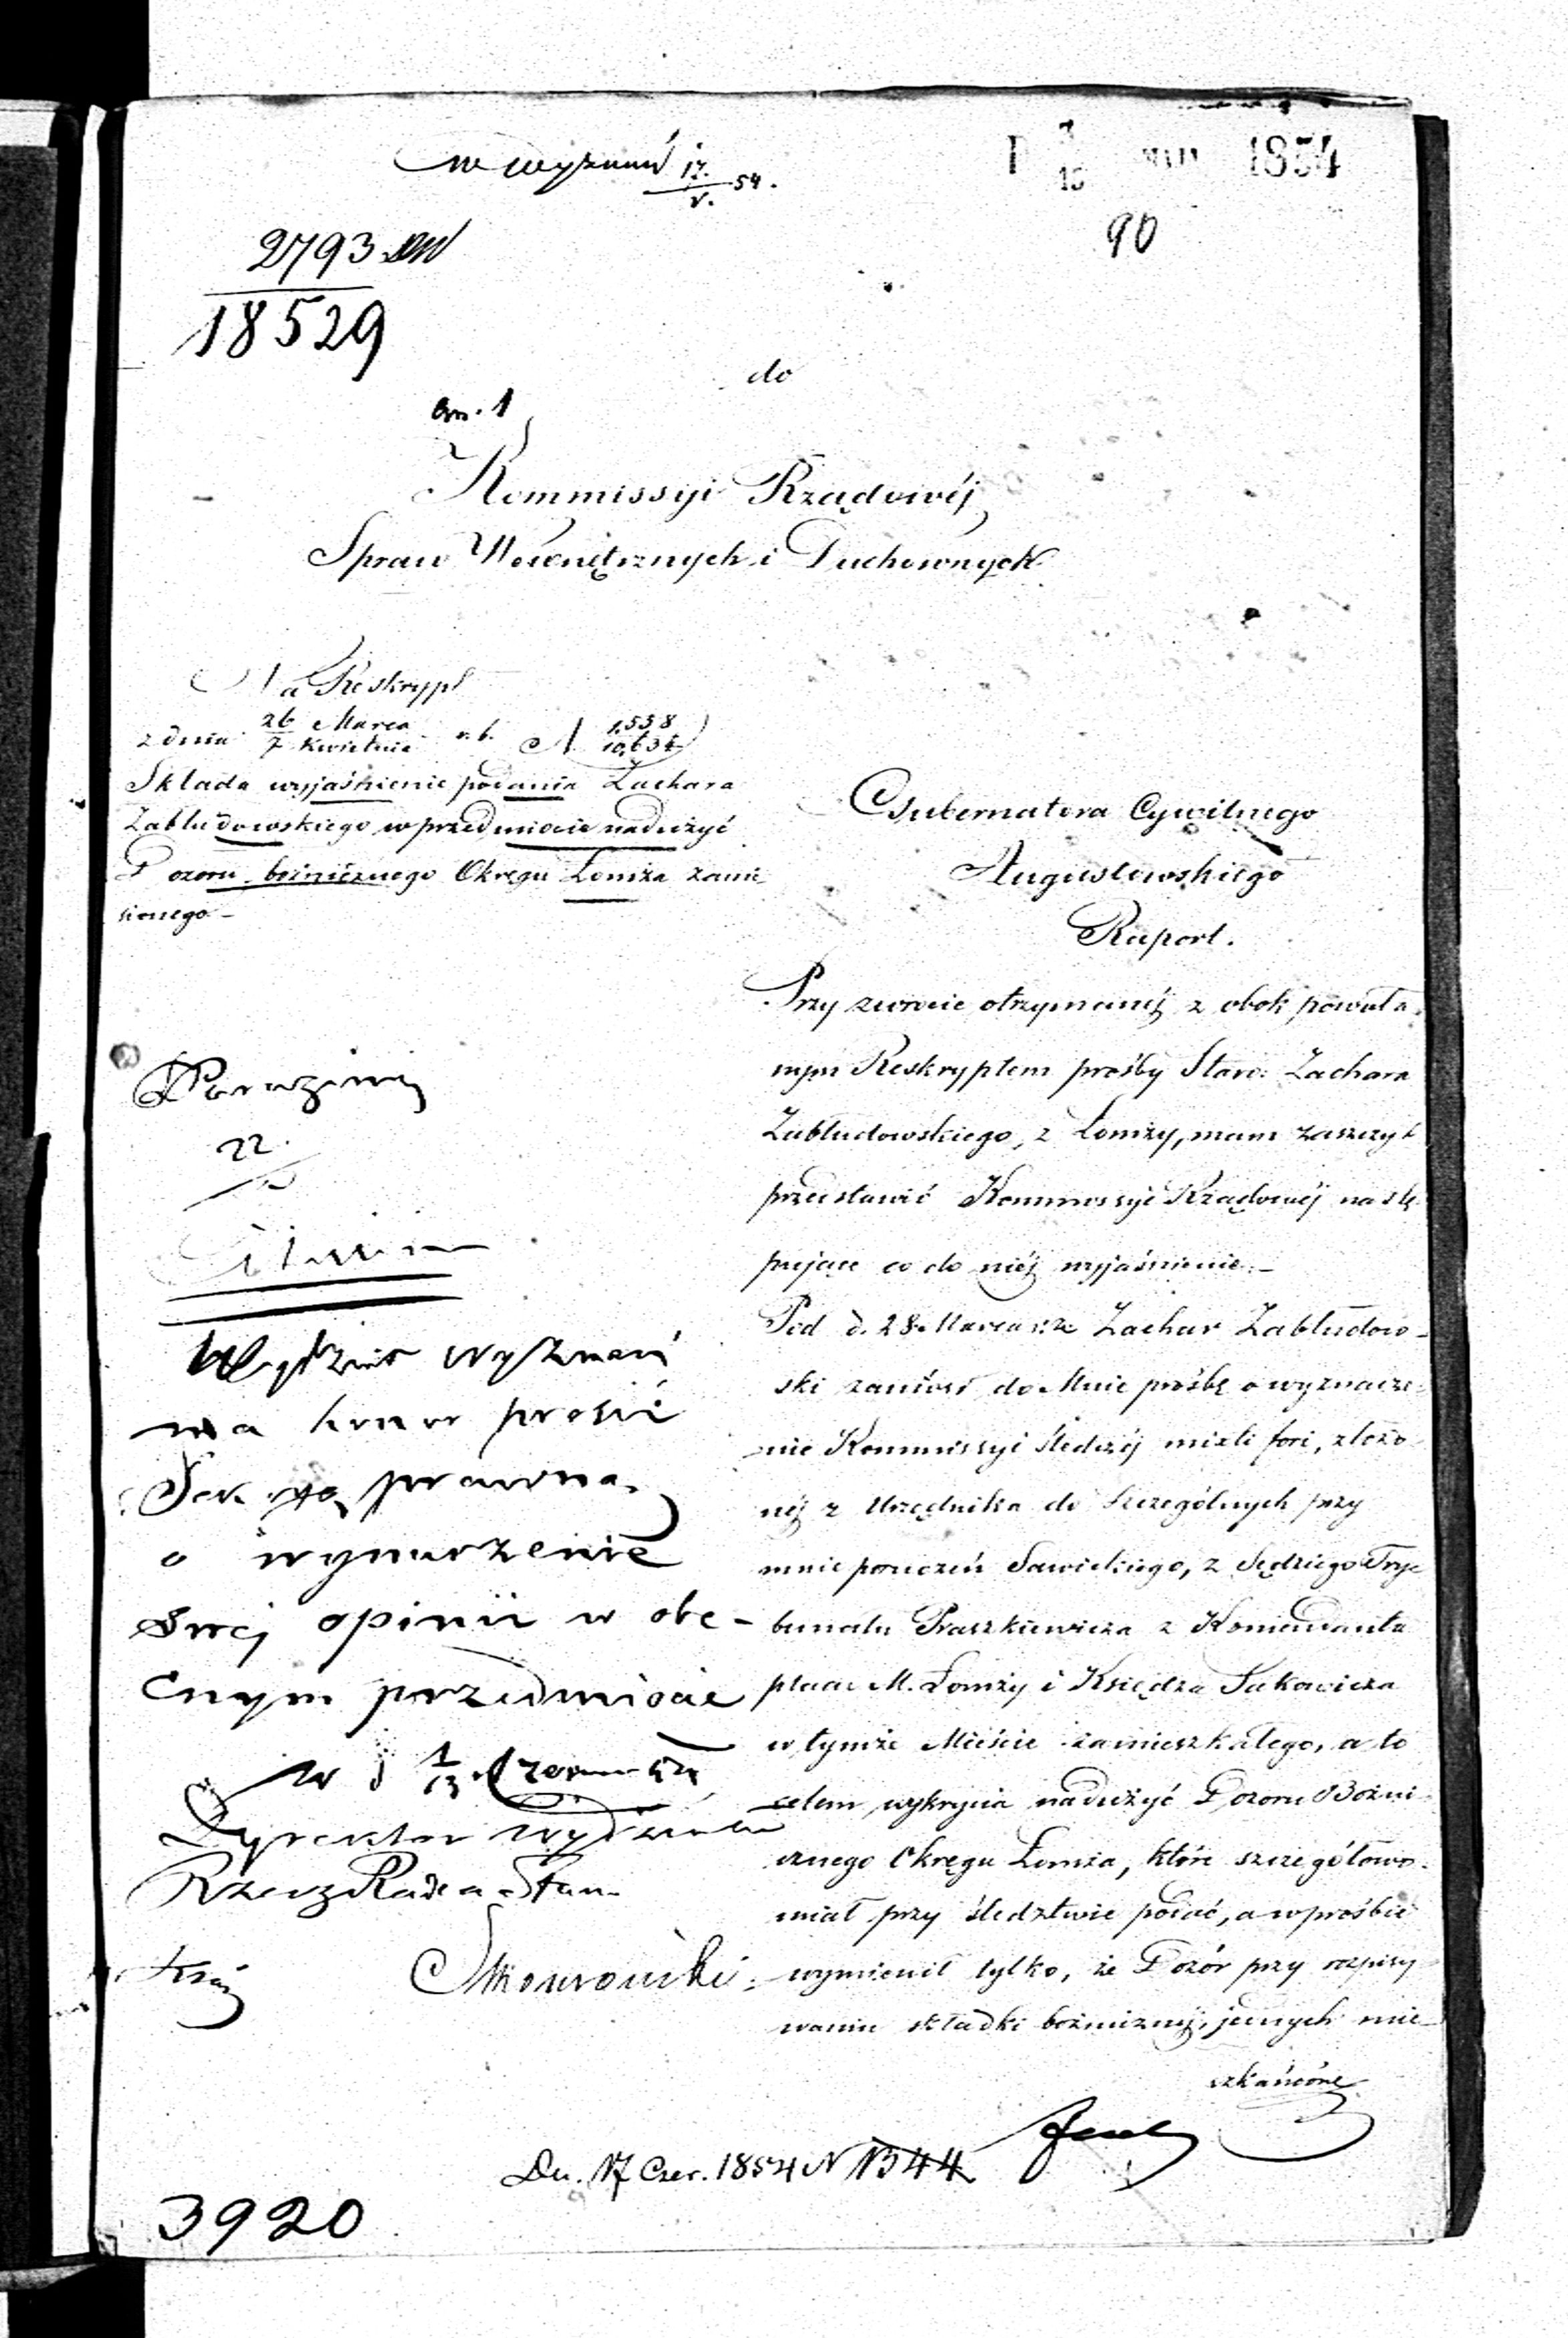 w wyznań 17./V. 54.
1854
90
2793
18529
do
an. 1
Kommissyi Rządowéj
Spraw Wewnętrznych i Duchownych
Na Reskrypt
z dnia 26 Marca / 7 Kwietnia r. b. N
Składa wyjaśnienie podania Zachara
Zabłudowskiego w przedmiocie nadużyć
Dozoru bóżnicznego Okręgu Łomża zanie-
sionego –
Gubernatora Cywilnego
Augustowskiego
Raport.
Przy zwrocie otrzymanéj z obok powoła-
nym Reskryptem prośby Staro: Zachara
Zabłudowskiego, z Łomży, mam zaszczyt
przedstawić Kommissyi Rządowéj nastę-
pujące co do niéj wyjaśnienie. –
Pod d. 28 Marca Zachar Zabłudow-
ski zaniósł do Mnie prośbę o wyznacze-
nie Kommissyi śledczéj mixti fori, złożo-
néj z Urzędnika do szczególnych przy
mnie poruczeń Sawickiego, z Sędziego Try-
bunału Praszkiewicza z Komendanta
placu M. Łomży i Księdza
w tymże Mieście zamieszkałego, a to
celem wykrycia nadużyć Dozoru Bóżni-
cznego Okręgu Łomża, które szczegółowo
miał przy śledztwie podać, a w prośbie
wymienił tylko, że Dozór przy rozpisy-
waniu składki bóżniczney, jednych mie-
szkańców
22
Wydział wyznań
ma honor prosić
Sekcyą prawną
o wynurzenie
swej opinii w obe-
cnym przedmiocie
w d 1/13 Czerwca 54
Dyrektor Wydziału
Rzecz. Radca Stan.
Dn. 17 Czer. 1854 N 1344
3920